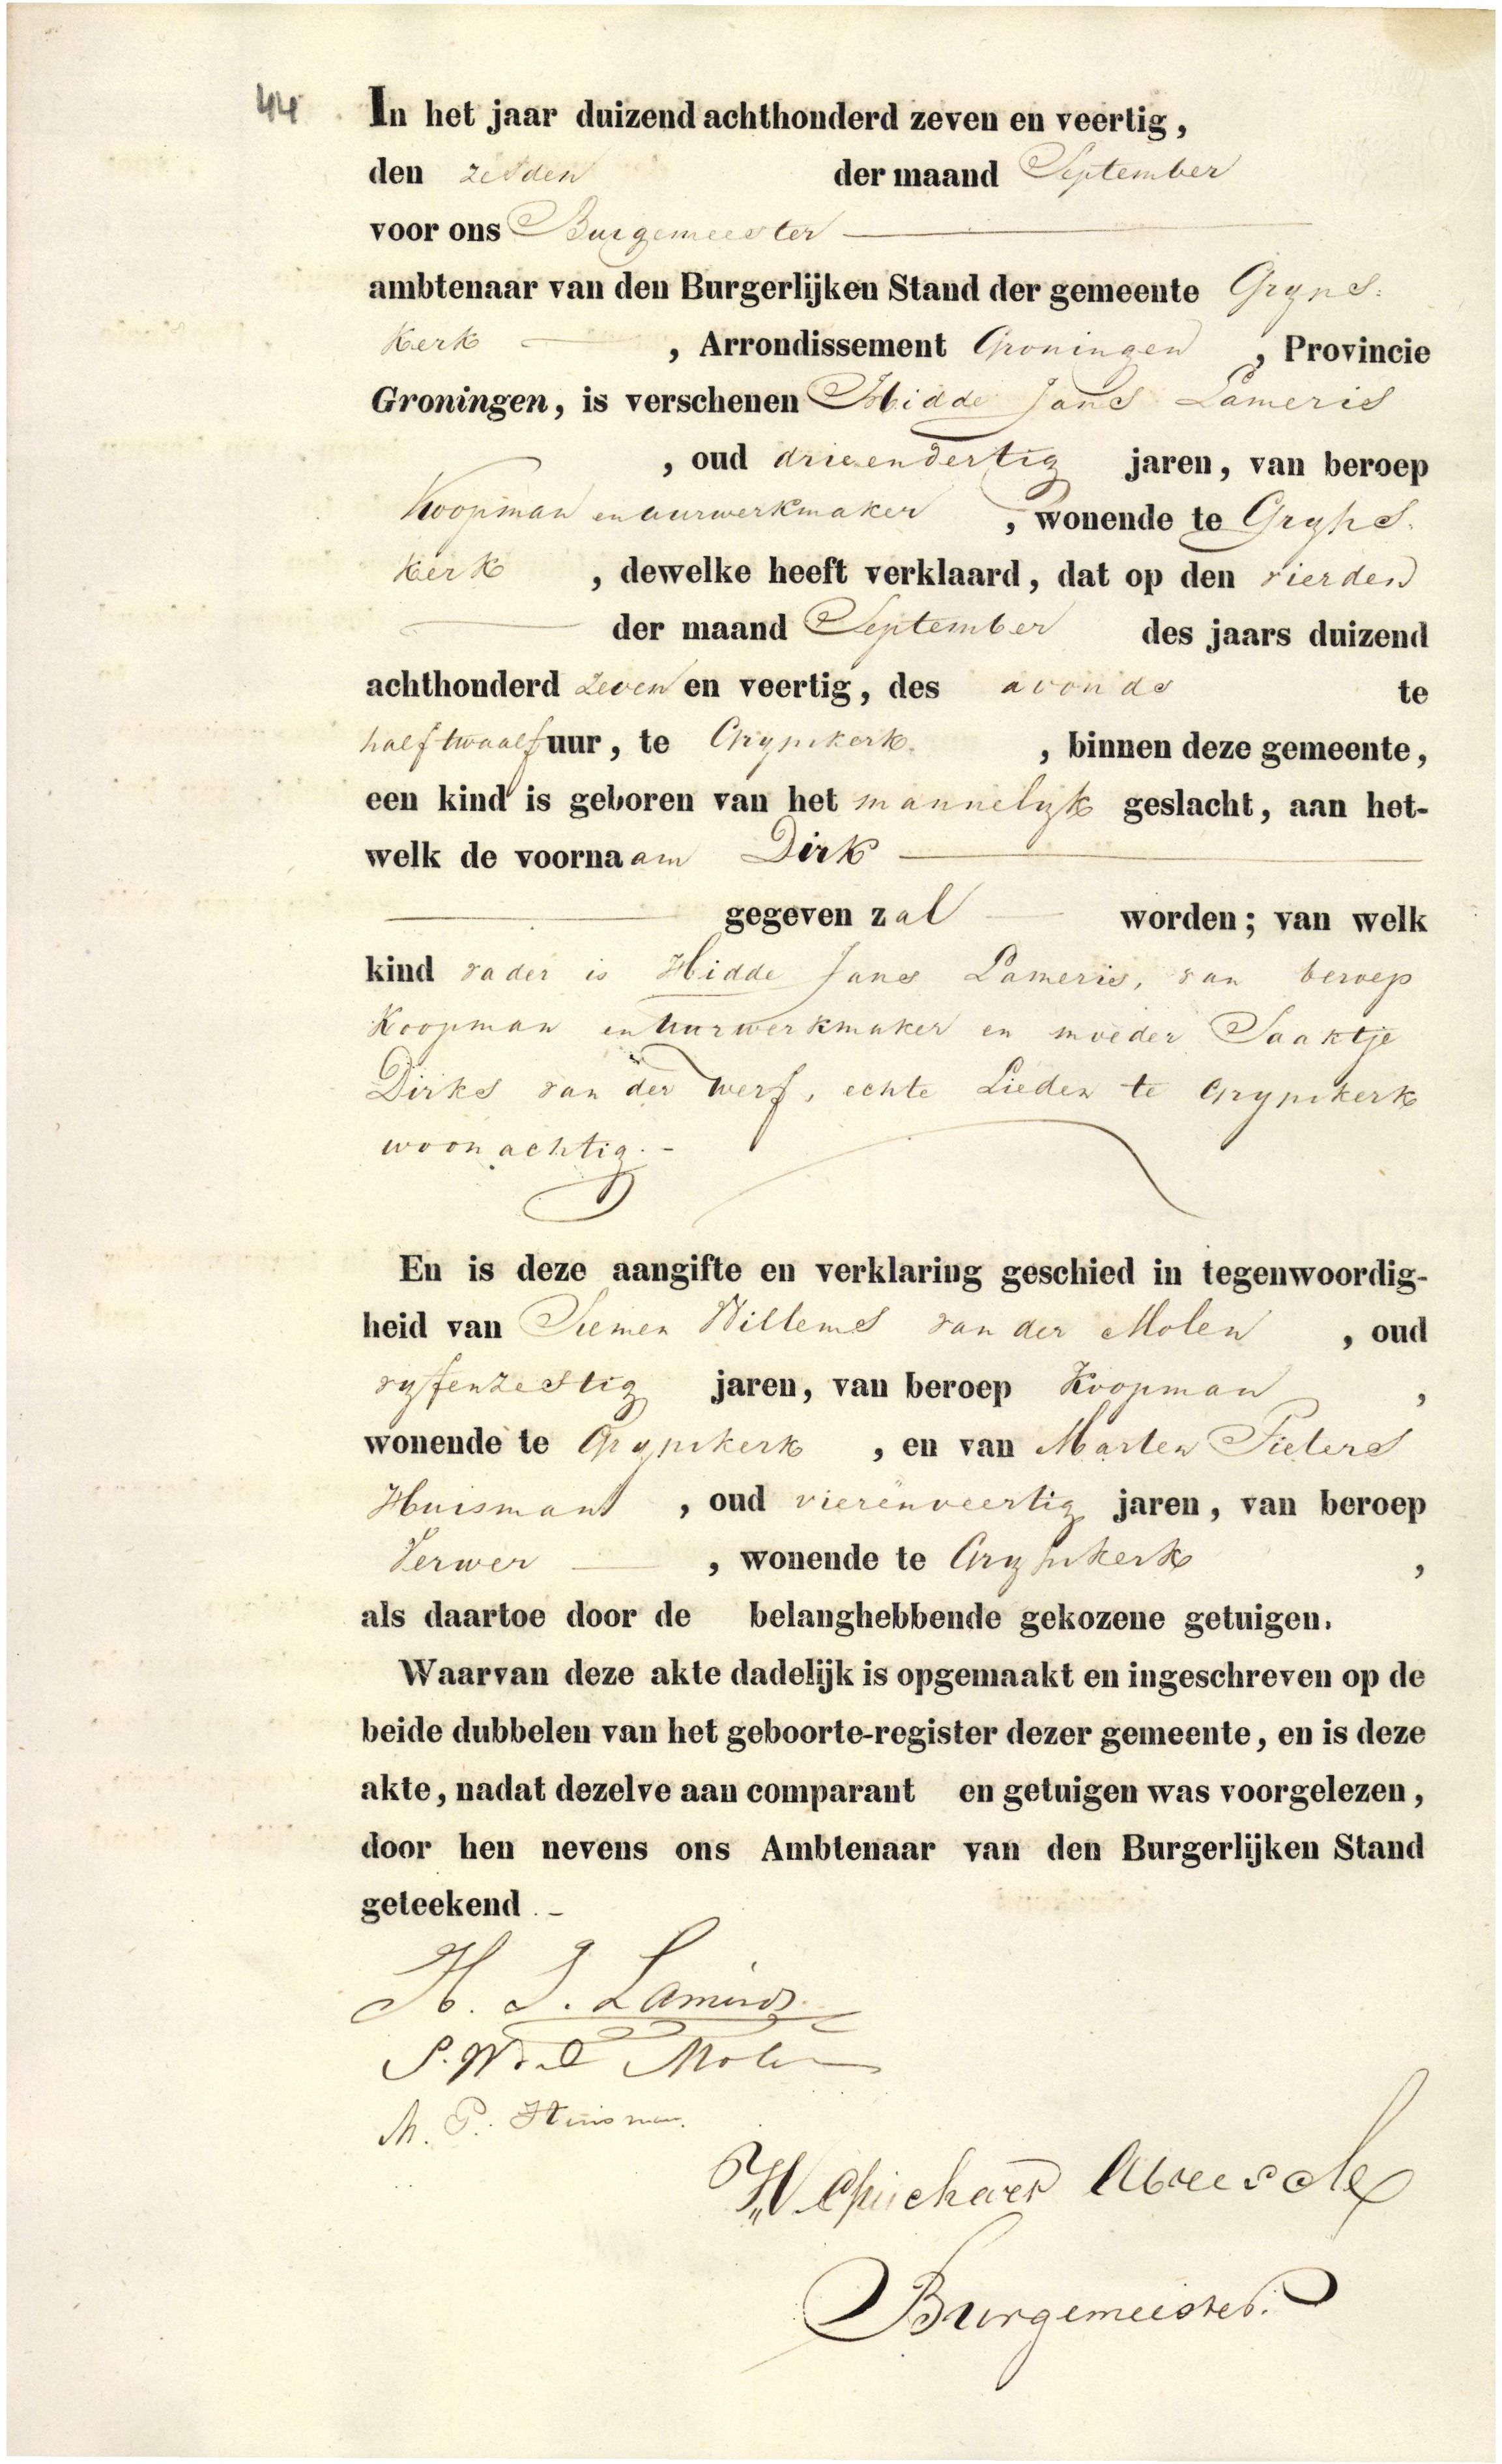 44 In het jaar duizend achthonderd zeven en veertig,
den zesden der maand September
voor ons Burgemeester
ambtenaar van den Burgerlijken Stand der gemeente Gryps-
kerk, Arrondissement Groningen, Provincie
Groningen, is verschenen Hidde Jans Lameris
, oud drieendertig jaren, van beroep
Koopman en uurwerkmaker, wonende te Gryps-
kerk, dewelke heeft verklaard, dat op den vierden
der maand September des jaars duizend
achthonderd zeven en veertig, des avonds te
half twaalf uur, te Grypskerk, binnen deze gemeente,
een kind is geboren van het mannelyk geslacht, aan het-
welk de voornaam Dirk
gegeven zal worden; van welk
kind vader is Hidde Jans Lameris, van beroep
Koopman en uurwerkmaker en moeder Saaktje
Dirks van der werf, echte Lieden te Grypskerk
woonachtig.-
En is deze aangifte en verklaring geschied in tegenwoordig-
heid van Siemen Willems van der Molen, oud
vyfenzestig jaren, van beroep Koopman,
wonende te Grypskerk, en van Marten Pieters
Huisman, oud vierenveertig jaren, van beroep
Verwer, wonende te Grypskerk,
als daartoe door de belanghebbende gekozene getuigen.
Waarvan deze akte dadelijk is opgemaakt en ingeschreven op de
beide dubbelen van het geboorte-register dezer gemeente, en is deze
akte, nadat dezelve aan comparant en getuigen was voorgelezen,
door hen nevens ons Ambtenaar van den Burgerlijken Stand
geteekend.-
H. J. Lameris
S. W v d Molen
M. P. Huisman.
Burgemeester.